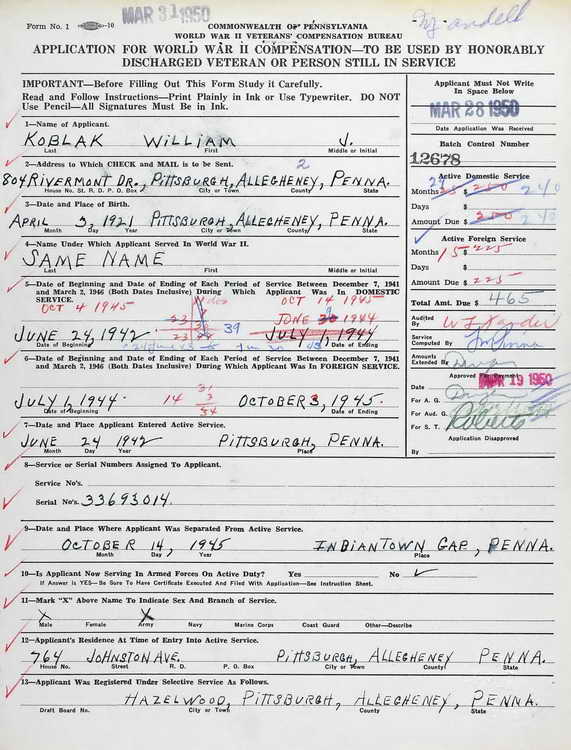 Form No. 1 -10 MAR 31 1950
COMMONWEALTH OF PENNSYLVANIA
WORLD WAR II VETERANS' COMPENSATION BUREAU
APPLICATION FOR WORLD WAR II COMPENSATION—TO BE USED BY HONORABLY
DISCHARGED VETERAN OR PERSON STILL IN SERVICE
IMPORTANT—Before Filling Out This Form Study it Carefully.
Read and Follow Instructions—Print Plainly in Ink or Use Typewriter. DO NOT
Use Pencil—All Signatures Must Be in Ink.
Applicant Must Not Write
In Space Below
MAR 28 1950
Date Application Was Received
Batch Control Number
12678
1—Name of Applicant.
KOBLAK WILLIAM J.
Last First Middle or Initial
2—Address to Which CHECK and MAIL is to be Sent. 2
804 RIVERMONT DR., PITTSBURGH, ALLEGHENEY, PENNA.
House No. St. R. D. P. O. Box City or Town County State
3—Date and Place of Birth.
APRIL 3, 1921 PITTSBURGH, ALLEGHENEY, PENNA.
Month Day Year City or Town County State
4—Name Under Which Applicant Served In World War II.
SAME NAME
Last First Middle or Initial
5—Date of Beginning and Date of Ending of Each Period of Service Between December 7, 1941
and March 2, 1946 (Both Dates Inclusive) During Which Applicant Was In DOMESTIC
SERVICE.
OCT 4 1945 OCT 14 1945
JUNE 30 1944
JUNE 24, 1942 39 JULY 1, 1944
Date of Beginning Date of Ending
6—Date of Beginning and Date of Ending of Each Period of Service Between December 7, 1941
and March 2, 1946 (Both Dates Inclusive) During Which Applicant Was In FOREIGN SERVICE.
JULY 1, 1944 14 OCTOBER 3, 1945.
Date of Beginning Date of Ending
7—Date and Place Applicant Entered Active Service.
JUNE 24 1942 PITTSBURGH, PENNA.
Month Day Year Place
Active Domestic Service
Months $ 240
Days $
Amount Due $ 240
Active Foreign Service
Months 15 $ 225
Days $
Amount Due $ 225
Total Amt. Due $ 465
Audited By
Service Computed By
Amounts Extended By
Approved For Payment
Date APR 19 1950
For A. G.
For Aud. G.
For S. T. Roberts
Application Disapproved
By
8—Service or Serial Numbers Assigned To Applicant.
Service No's.
Serial No's. 33693014.
9—Date and Place Where Applicant Was Separated From Active Service.
OCTOBER 14, 1945 INDIANTOWN GAP, PENNA.
Month Day Year Place
10—Is Applicant Now Serving In Armed Forces On Active Duty? Yes No ✓
If Answer is YES—Be Sure To Have Certificate Executed And Filed With Application—See Instruction Sheet.
11—Mark "X" Above Name To Indicate Sex And Branch of Service.
X X
Male Female Army Navy Marine Corps Coast Guard Other—Describe
12—Applicant's Residence At Time of Entry Into Active Service.
764 JOHNSTON AVE. PITTSBURGH, ALLEGHENEY PENNA.
House No. Street R. D. P. O. Box City or Town County State
13—Applicant Was Registered Under Selective Service As Follows.
HAZELWOOD, PITTSBURGH, ALLEGHENEY, PENNA.
Draft Board No. City or Town County State